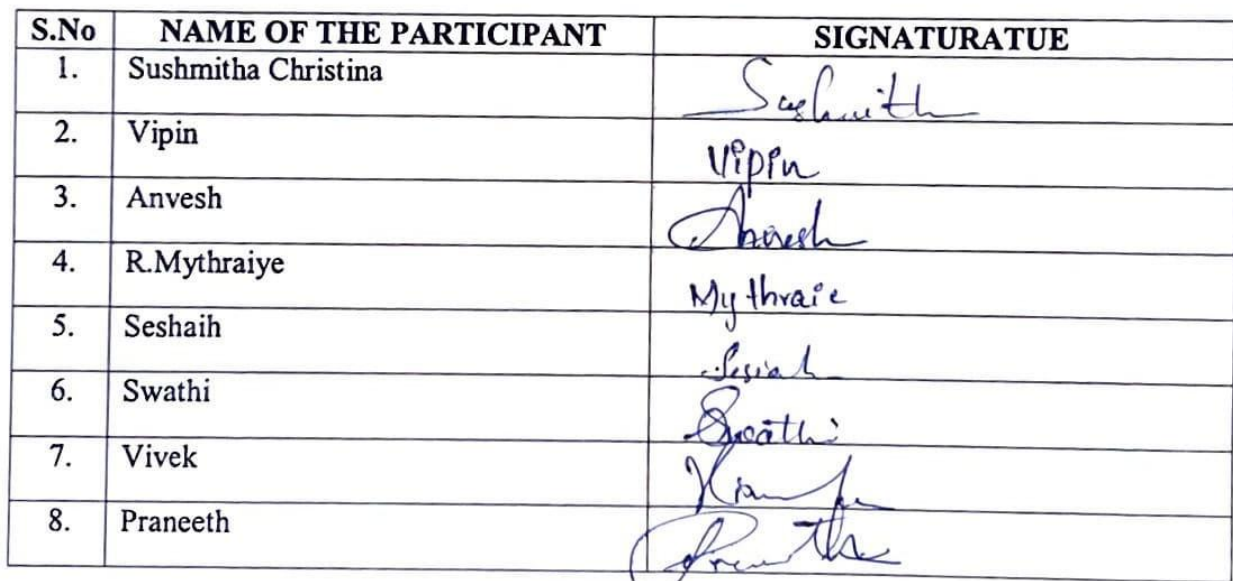 S.No NAME OF THE PARTICIPANT SIGNATURATUE
1. Sushmitha Christina Sushmith
2. Vipin Vipin
3. Anvesh Anvesh
4. R.Mythraiye Mythraie
5. Seshaih Sesiah
6. Swathi Swathi
7. Vivek
8. Praneeth